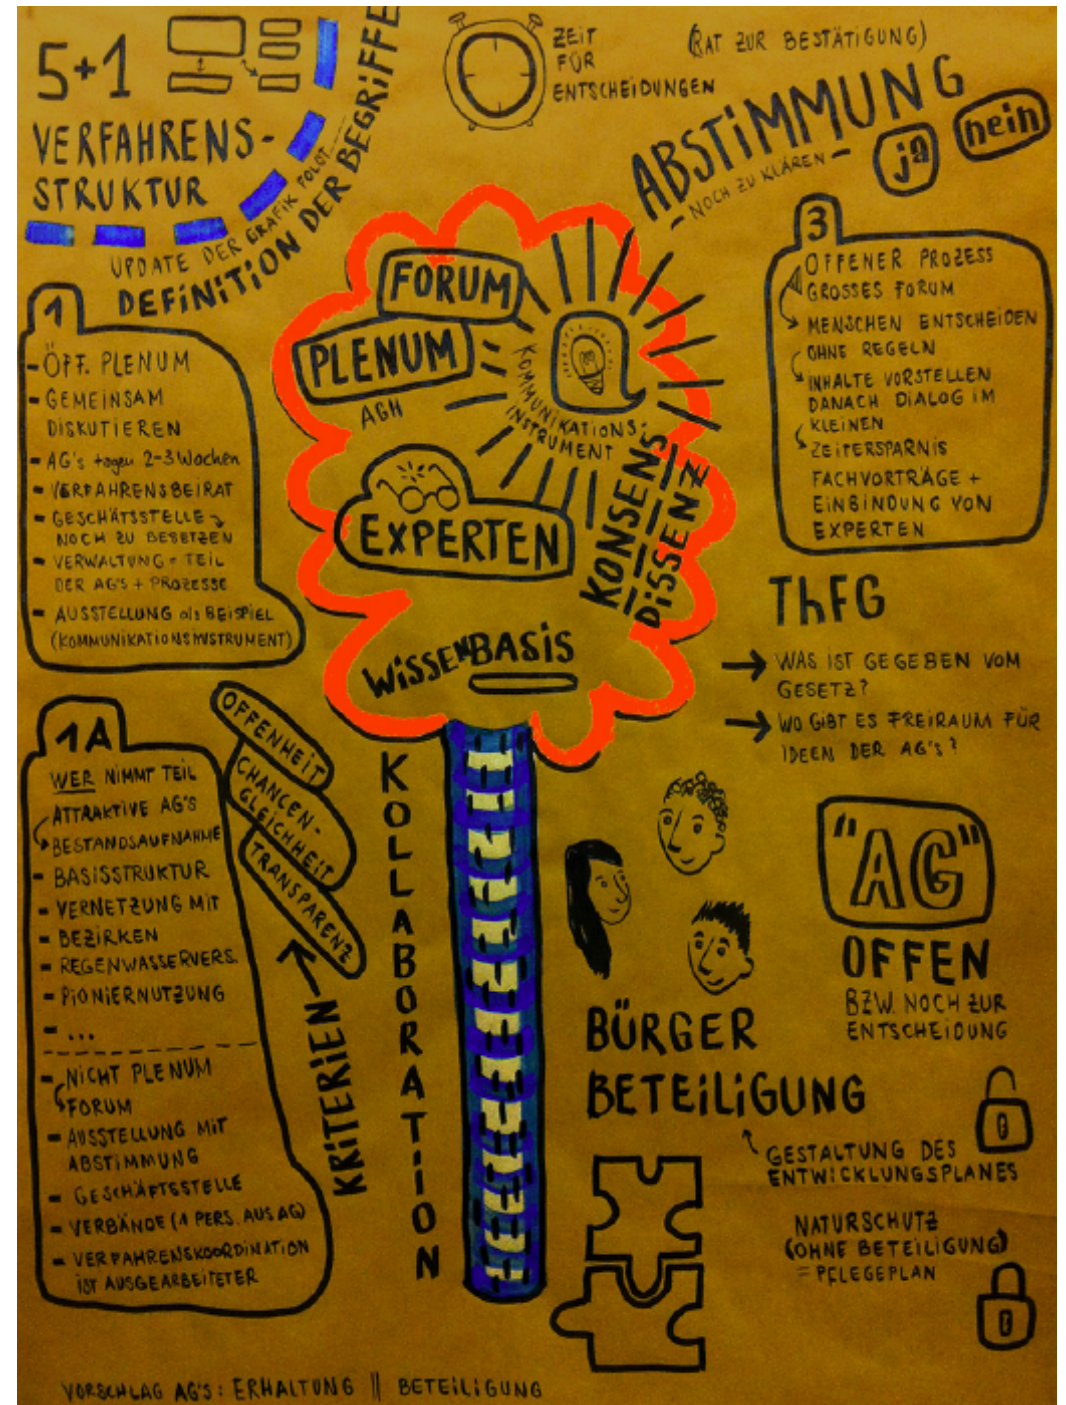 5+1
VERFAHRENS-
STRUKTUR
UPDATE DER GRAFIK FOLGT...
DEFINITION DER BEGRIFFE
ZEIT
FÜR
ENTSCHEIDUNGEN
(RAT ZUR BESTÄTIGUNG)
ABSTIMMUNG
- NOCH ZU KLÄREN -
ja
nein
1
- ÖFF. PLENUM
- GEMEINSAM
DISKUTIEREN
- AG's tagen 2-3 Wochen
- VERFAHRENSBEIRAT
- GESCHÄTSSTELLE
NOCH ZU BESETZEN
- VERWALTUNG = TEIL
DER AG'S + PROZESSE
- AUSSTELLUNG als BEISPIEL
(KOMMUNIKATIONSINSTRUMENT)
FORUM
PLENUM
AGH
KOMMUNIKATIONS-
INSTRUMENT
EXPERTEN
KONSENS
DISSENZ
WISSENBASIS
3
OFFENER PROZESS
GROSSES FORUM
MENSCHEN ENTSCHEIDEN
OHNE REGELN
INHALTE VORSTELLEN
DANACH DIALOG IM
KLEINEN
ZEITERSPARNIS
FACHVORTRÄGE +
EINBINDUNG VON
EXPERTEN
ThFG
→ WAS IST GEGEBEN VOM
GESETZ?
→ WO GIBT ES FREIRAUM FÜR
IDEEN DER AG's?
1A
WER NIMMT TEIL
ATTRAKTIVE AG'S
BESTANDSAUFNAHME
- BASISSTRUKTUR
- VERNETZUNG MIT
- BEZIRKEN
- REGENWASSERVERS.
- PIONIERNUTZUNG
- ...
- NICHT PLENUM
FORUM
- AUSSTELLUNG MIT
ABSTIMMUNG
- GESCHÄFTSSTELLE
- VERBÄNDE (1 PERS. AUS AG)
- VERFAHRENSKOORDINATION
IST AUSGEARBEITETER
OFFENHEIT
CHANCEN-
GLEICHHEIT
TRANSPARENZ
KRITERIEN
KOLLABORATION
"AG"
OFFEN
BZW. NOCH ZUR
ENTSCHEIDUNG
BÜRGER
BETEILIGUNG
GESTALTUNG DES
ENTWICKLUNGSPLANES
NATURSCHUTZ
(OHNE BETEILIGUNG)
= PFLEGEPLAN
VORSCHLAG AG'S: ERHALTUNG || BETEILIGUNG